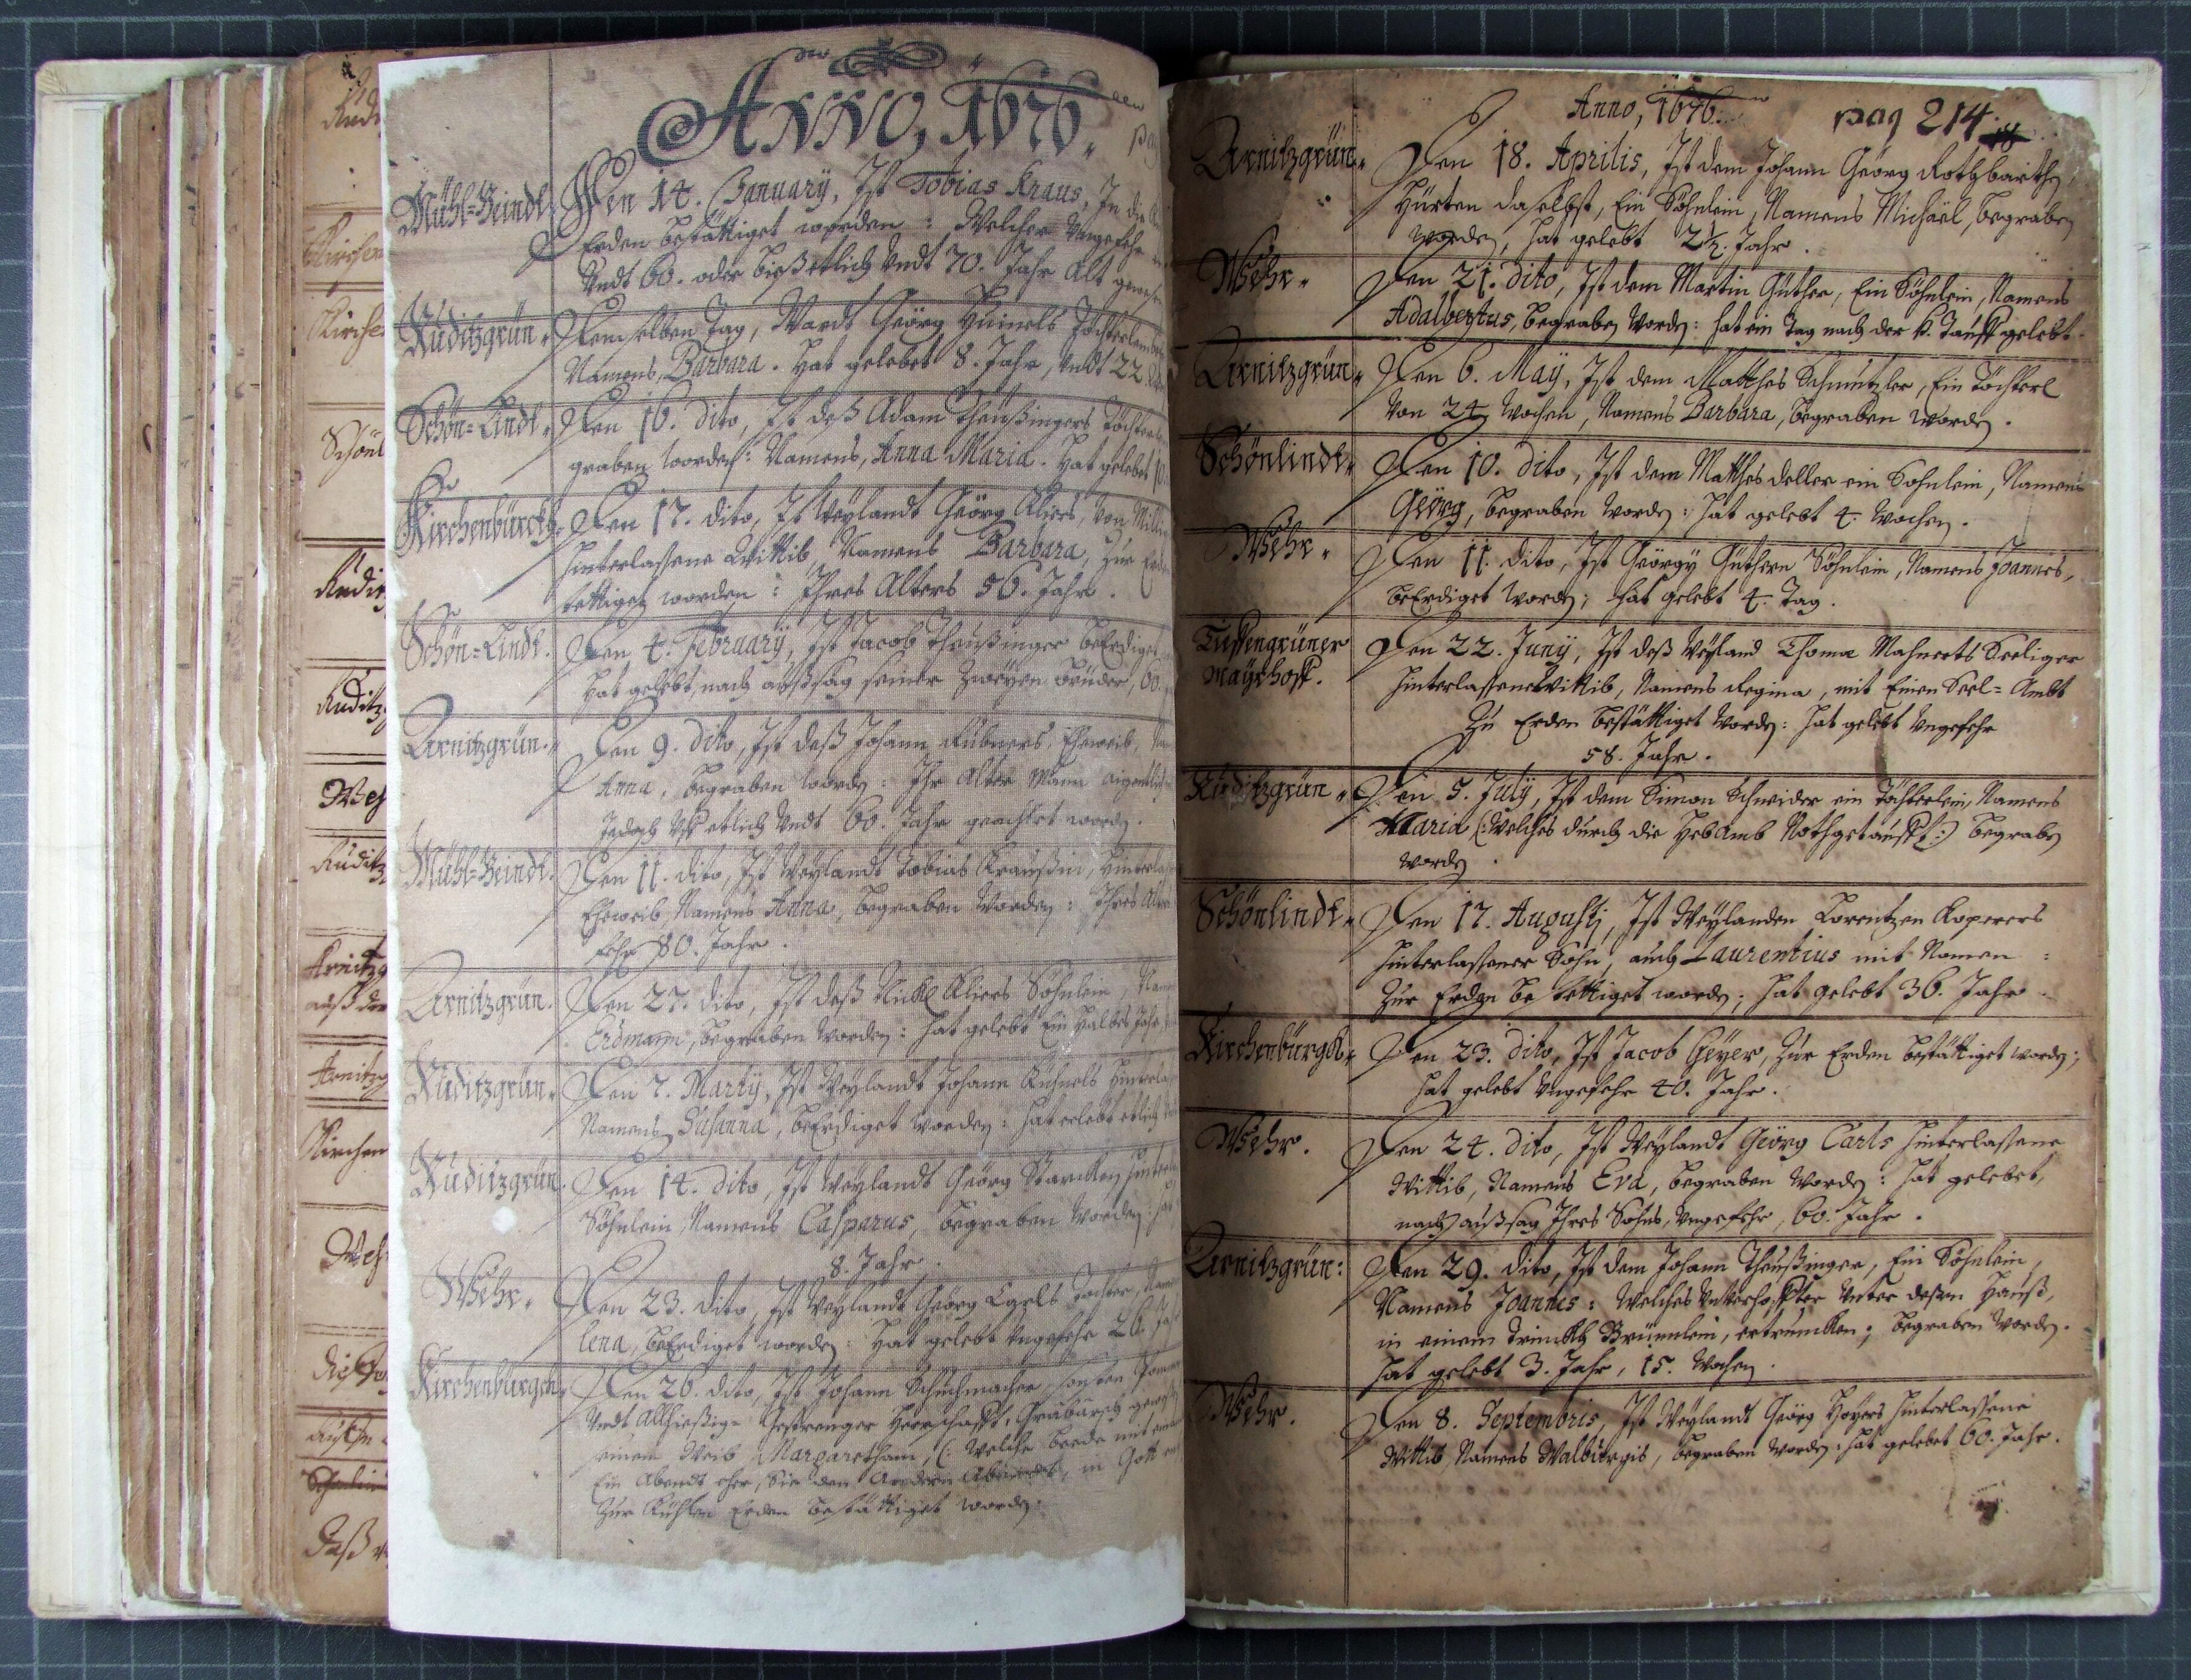 ANNO, 1676.
Mühl-Reindl. Den 14. January, Ist Tobias Kraus, In die
Erden bestättiget worden: Welcher Ungefehr
Undt 60. oder bieß etlich Undt 70. Jahr Alt gewesen
Ruditzgrün. Demselben Tag, Wardt Geörg Huinels Töchterlein
Namens, Barbara. Hat gelebet 8. Jahr, Undt 22
Schön-Lindt. Den 16. dito, Ist deß Adam Theußingers Töchterl
graben worden: Namens, Anna Maria. Hat gelebet 10
Kirchenbürckh. Den 17. dito, Ist Weylandt Geörg Kliers, Von
hinterlassene Wittib, Namens Barbara, zur Erden
stettiget worden: Ihres Alters 56. Jahr.
Schön-Lindt. Den 4. February, Ist Jacob Theußinger beerdiget
Hat gelebt, nach außsag seiner Zweyen brüder, 60.
Arnitzgrün. Den 9. dito, Ist daß Johann Eheweib,
Anna, begraben worden: Ihr Alter Mann aigentlich
Jedoch Uff etlich Undt 60. Jahr geachtet worden.
Mühl-Reindl. Den 11. dito, Ist Weylandt Tobias Kraußen, hinterlass
Eheweib, Namens Anna, begraben Worden: Ihres Alters
fehr 80. Jahr.
Arnitzgrün. Den 27. dito, Ist deß Nickl Kliers Söhnlein, Nam
Erdmann, begraben Worden: hat gelebt Ein halbes Jahr
Ruditzgrün. Den 7. Marty, Ist Weylandt Johann hinterla
Namens Susanna, beerdiget Worden: hat erlebt etlich
Ruditzgrün. Den 14. dito, Ist Weylandt Geörg Starcken hinterl
Söhnlein, Namens Casparus, begraben Worden: hat
8. Jahr.
Wöhr. Den 23. dito, Ist Weylandt Geörg Carls Tochter, Nam
lena, beerdiget worden: Hat gelebt Ungefehr 26. Jahr
Kirchenbürgch. Den 26. dito, Ist Johann Schuhmacher,
Undt Allhießig- Gestrenger Herrschafft,
einem Weib Margaretham, (: Welche beede mit
Ein Abendt eher, Sie den Andern Abendt, in Gott
Zur Kühlen Erden bestättiget worden.
Anno, 1676.
pag 214.
Arnitzgrün. Den 18. Aprilis, Ist dem Johann Geörg Rothbarthen,
Hürten daselbst, Ein Söhnlein, Namens Michaël, begraben
worden, hat gelebt 2½. Jahr.
Wöhr. Den 21. dito, Ist dem Martin Güther, Ein Söhnlein, Namens
Adalbertus, begraben Worden: hat ein Tag nach der h. Tauff gelebt.
Arnitzgrün. Den 6. May, Ist dem Matthes Schmützler, Ein Töchterl
Von 24 Wochen, Namens Barbara, begraben worden.
Schönlindt. Den 10. dito, Ist dem Matthes deller ein Sohnlein, Namens
Geörg, begraben Worden: hat gelebt 4. Wochen.
Wöhr. Den 11. dito, Ist Geörgy Güthern Söhnlein, Namens Joannes,
beerdiget Worden; hat gelebt 4. Tag.
Tussengrüner Den 22. Juny, Ist deß Weyland Thomæ Mahnerts Seeliger
Mayrhoff. hinterlassene Wittib, Namens Regina, mit Einen Seel-Ambt
Zu Erden bestättiget Worden: hat gelebt Ungefehr
58. Jahr.
Ruditzgrün. Den 5. July, Ist dem Simon Schneider ein Töchterlein, Namens
Maria (:Welches durch die Hebamb Nothgetaufft:) begraben
worden.
Schönlindt. Den 17. Augusti, Ist Weylanden Lorentzen Koperers
hinterlassener Sohn, auch Laurentius mit Namen:
Zur Erden bestettiget worden; hat gelebt 36. Jahr.
Kirchenbürgch. Den 23. dito, Ist Jacob Geyer, Zur Erden bestättiget worden;
hat gelebt Ungefehr 40. Jahr.
Wöhr. Den 24. dito, Ist Weylandt Geörg Carls hinterlassene
Wittib, Namens Eva, begraben Worden: hat gelebet,
nach außsag Ihres Sohns, Ungefehr, 60. Jahr.
Arnitzgrün: Den 29. dito, Ist dem Johann Theußinger, Ein Söhnlein,
Namens Joannes: Welches Unverhoffter Unter dessen Hauß,
in einem Trinckh Brünnlein, ertruncken; begraben Worden.
hat gelebt 3. Jahr, 15. Wochen.
Wöhr. Den 8. Septembris, Ist Weylandt Geörg Hoyers hinterlassene
Wittib, Namens Walburgis, begraben Worden: hat gelebet 60. Jahr.